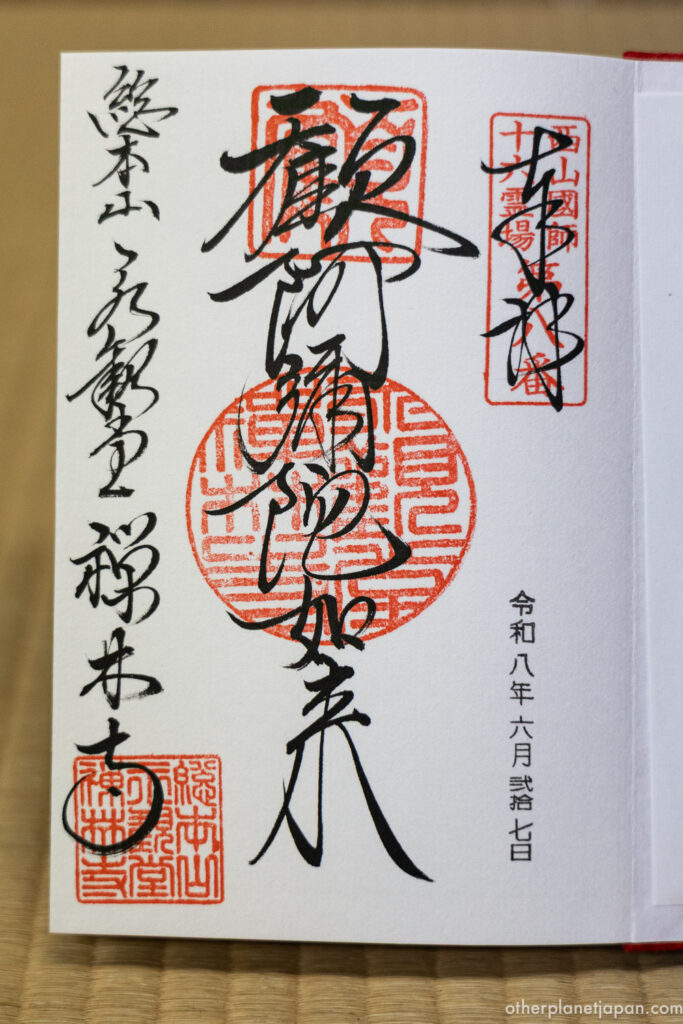 奉拝
西山國師
十六霊場
第八番
令和八年六月弐拾七日
顧阿彌陀如来
総本山 永観堂 禅林寺
総本山
永観堂
禅林寺
otherplanetjapan.com